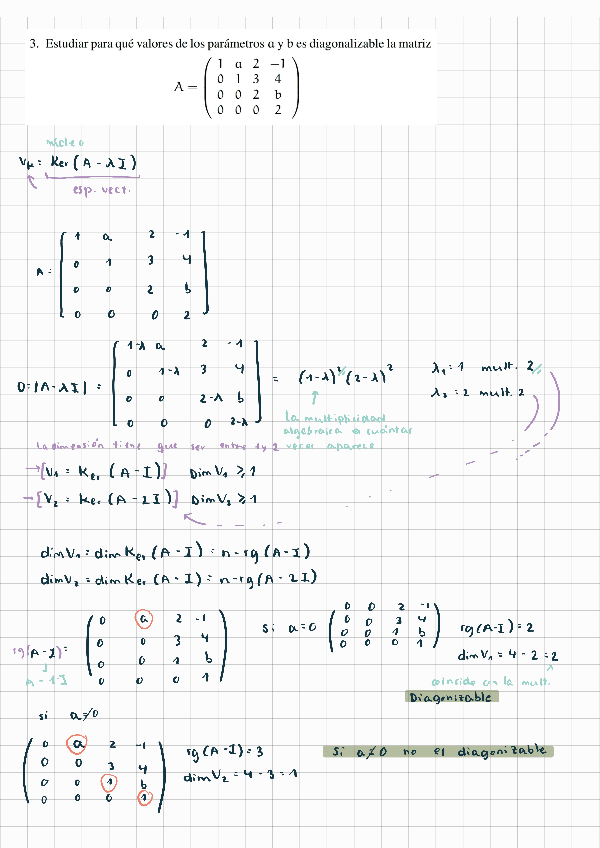 3. Estudiar para qué valores de los parámetros a y b es diagonalizable la matriz
A = ( 1 a 2 −1
0 1 3 4
0 0 2 b
0 0 0 2 )
núcleo
Vμ: Ker (A - λI)
esp. vect.
A: [ 1 a 2 -1
0 1 3 4
0 0 2 b
0 0 0 2 ]
0=|A-λI| = [ 1-λ a 2 -1
0 1-λ 3 4
0 0 2-λ b
0 0 0 2-λ ] = (1-λ)² (2-λ)²
λ₁=1 mult. 2
λ₂=2 mult. 2
La multiplicidad
algebraica a cuántas
veces aparece
La dimensión tiene que ser entre 1 y 2
→[V₁ = Ker (A-I)] Dim V₁ ≥ 1
→[V₂ = Ker (A-2I)] Dim V₂ ≥ 1
dim V₁ = dim Ker (A-I) = n-rg(A-I)
dim V₂ = dim Ker (A-I) = n-rg(A-2I)
rg(A-I)= ( 0 a 2 -1
0 0 3 4
0 0 1 b
0 0 0 1 )
A-1·I
Si a=0 ( 0 0 2 -1
0 0 3 4
0 0 1 b
0 0 0 1 )
rg(A-I)=2
dim V₁ = 4-2=2
coincide con la mult.
Diagonizable
si a≠0
( 0 a 2 -1
0 0 3 4
0 0 1 b
0 0 0 1 )
rg(A-I)=3
dim V₂ = 4-3=1
Si a≠0 no el diagonizable